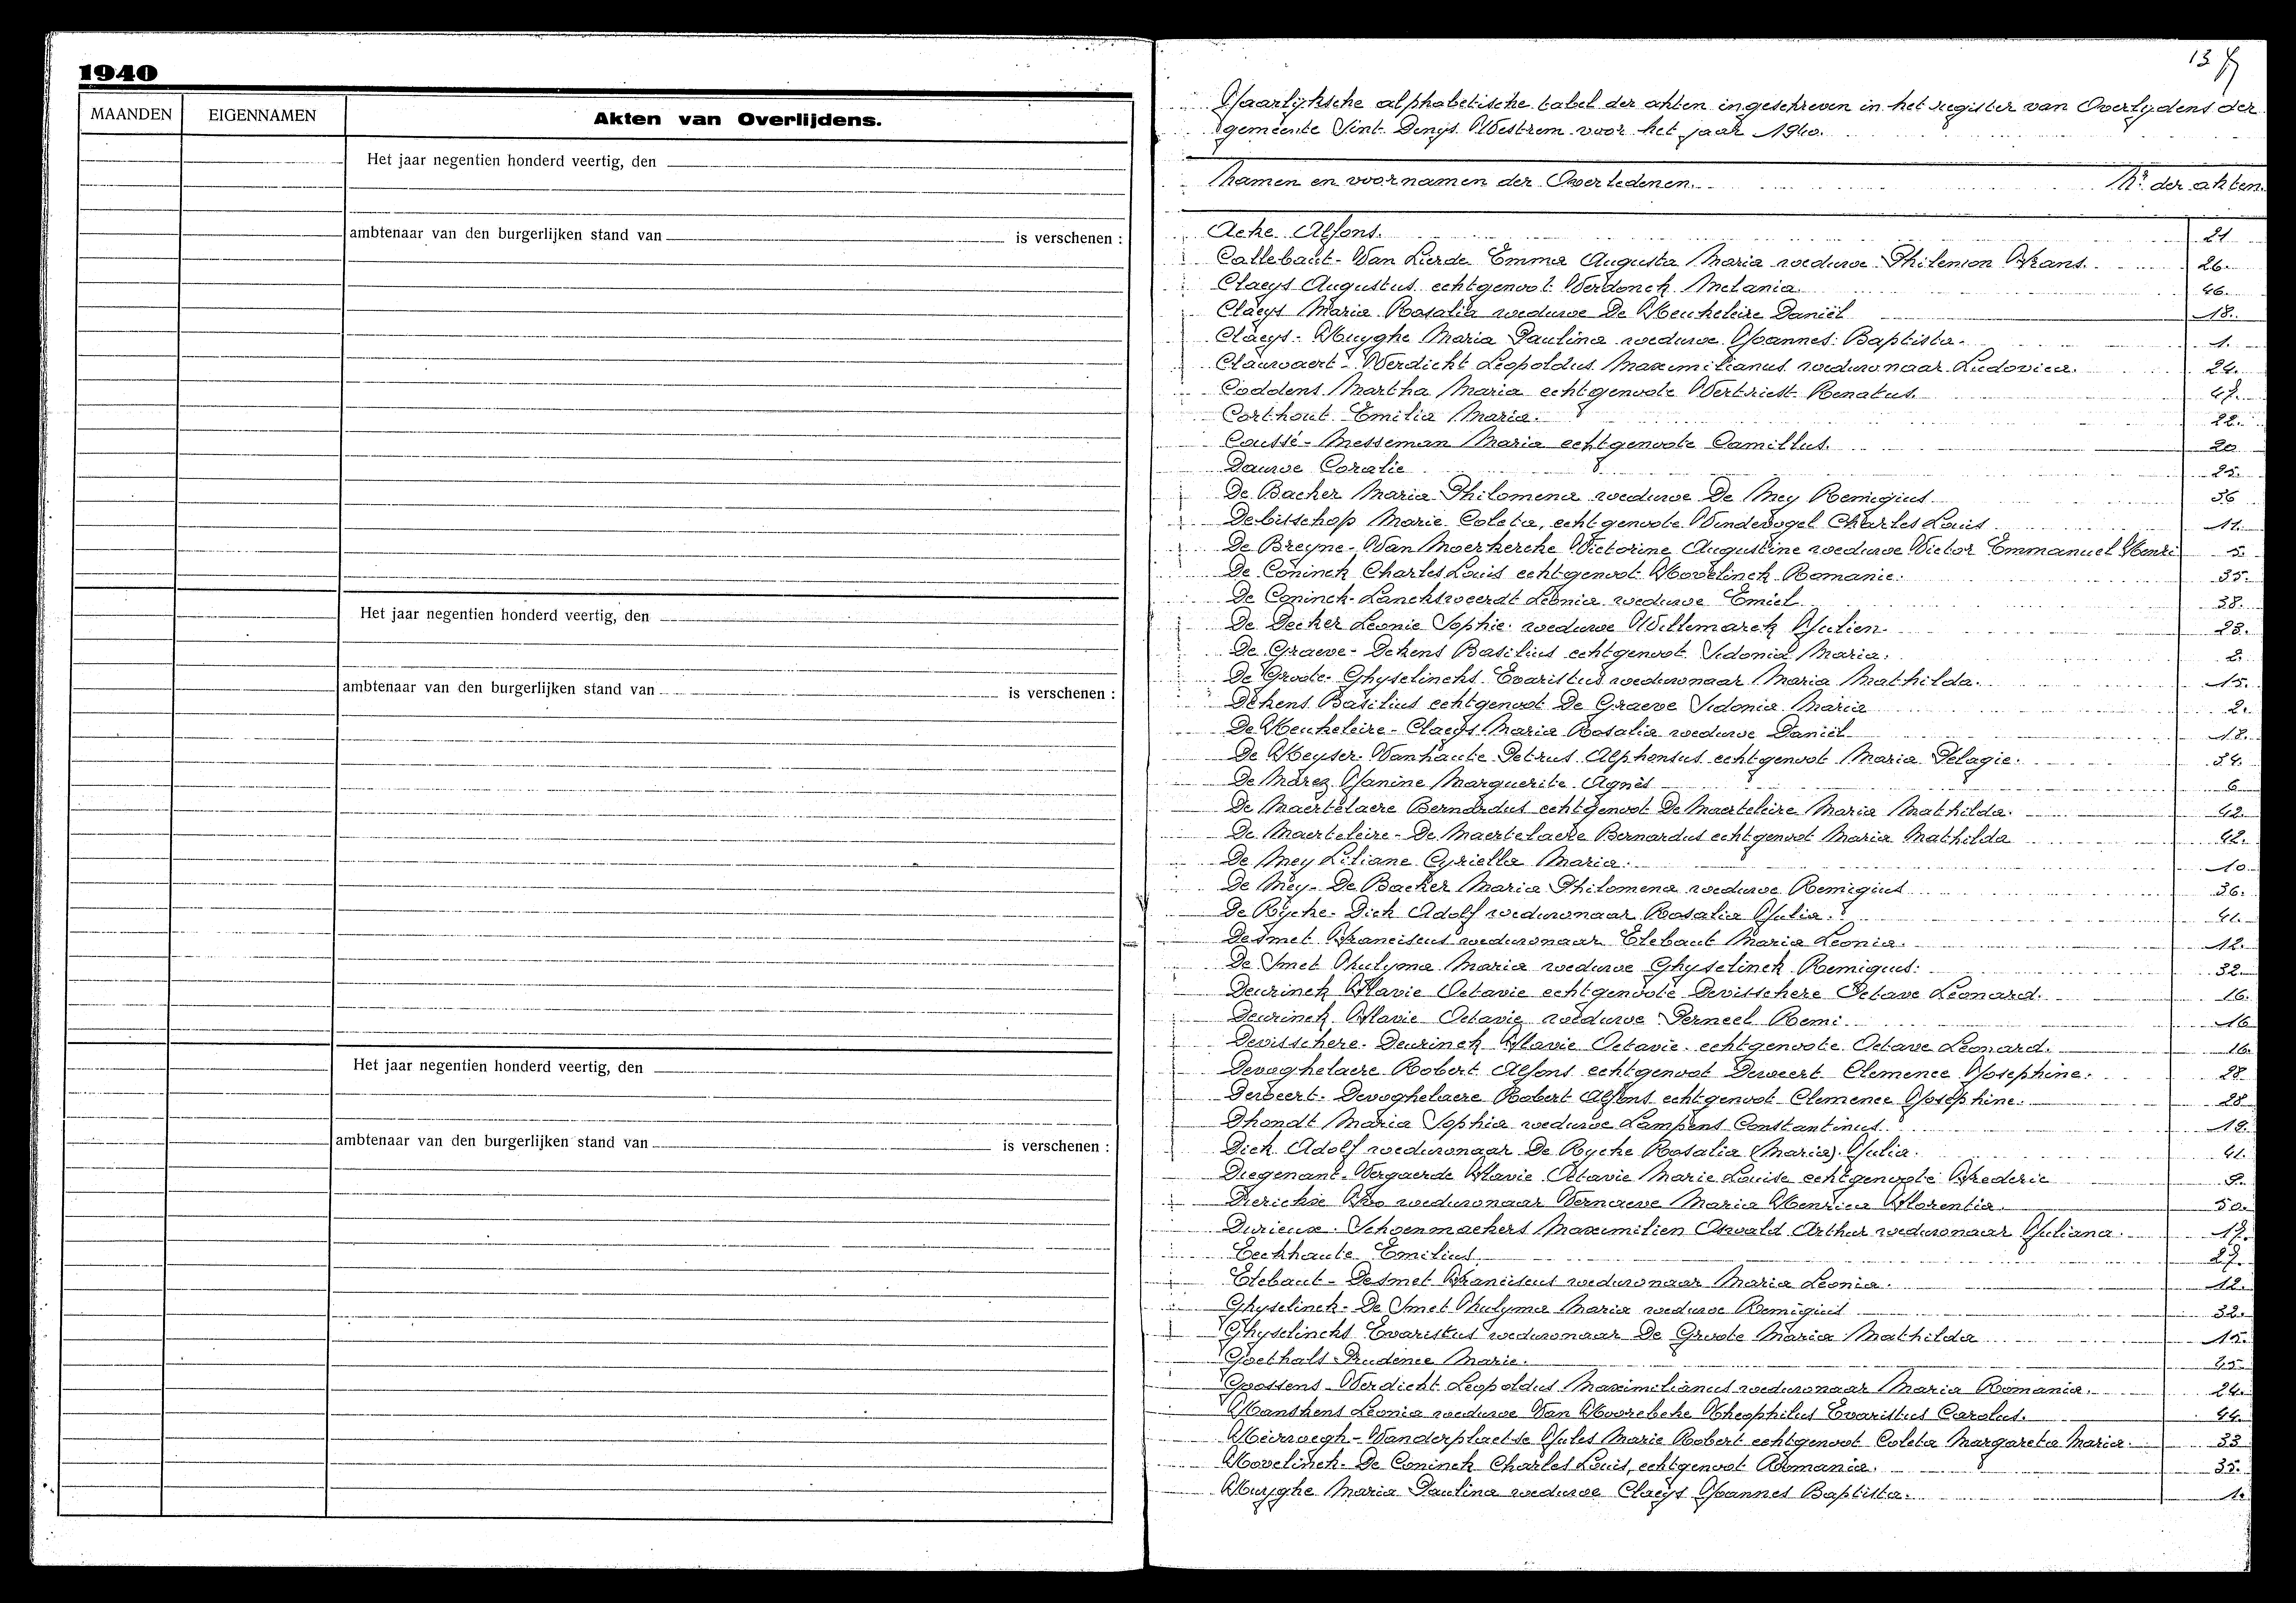 1940
MAANDEN EIGENNAMEN Akten van Overlijdens.
Het jaar negentien honderd veertig, den
ambtenaar van den burgerlijken stand van is verschenen :
Het jaar negentien honderd veertig, den
ambtenaar van den burgerlijken stand van is verschenen :
Het jaar negentien honderd veertig, den
ambtenaar van den burgerlijken stand van is verschenen :
13
Jaarlijksche alphabetische tabel der akten ingeschreven in het register van Overlijdens der
gemeente Sint Denys Westrem voor het jaar 1940.
Namen en voornamen der Overledenen. Nr. der akten.
Acke Alfons. 21
Callebaut - Van Lierde Emma Augusta Maria weduwe Philemon Frans. 26.
Claeys Augustus echtgenoot Verdonck Melania. 46.
Claeys Maria Rosalia weduwe De Keukeleire Daniël 18.
Claeys - Huyghe Maria Paulina weduwe Joannes Baptista. 1.
Clauwaert - Verdickt Leopoldus Maximilianus weduwnaar Ludovica. 24.
Coddens Martha Maria echtgenoote Vertriest Renatus. 47.
Corthout Emilia Maria. 22.
Coussé - Messeman Maria echtgenoote Camillus. 20
Dauwe Coralie 25.
De Backer Maria Philomena weduwe De Mey Remigius 36
Debisschop Marie Coleta, echtgenoote Windevogel Charles Louis 11.
De Breyne - Van Moerkercke Victorine Augustine weduwe Victor Emmanuel Henri 5.
De Coninck Charles Louis echtgenoot Hovelinck Romanie. 35.
De Coninck - Lancksweerdt Leonia weduwe Emiel 38.
De Decker Leonie Sophie weduwe Willemarck Julien. 23.
De Graeve - Dekens Basilius echtgenoot Sidonia Maria. 2.
De Groote - Ghyselinckx Evaristus weduwnaar Maria Mathilda. 15.
Dekens Basilius echtgenoot De Graeve Sidonia Maria 2.
De Keukeleire - Claeys Maria Rosalia weduwe Daniël 18.
De Keyser - Vanhaute Petrus Alphonsus echtgenoot Maria Pelagie. 34.
De Marez Janine Marguerite Agnès 6
De Maertelaere Bernardus echtgenoot De Maerteleire Maria Mathilda. 42.
De Maerteleire - De Maertelaere Bernardus echtgenoot Maria Mathilda 42.
De Mey Liliane Cyriella Maria. 10
De Mey - De Backer Maria Philomena weduwe Remigius 36.
De Rycke - Dick Adolf weduwnaar Rosalia Julia. 41.
Desmet Franciscus weduwnaar Elebaut Maria Leonia. 12.
De Smet Maria weduwe Ghyselinck Remigius. 32.
Deurinck Flavie Octavie echtgenoote Devisschere Octave Leonard. 16.
Deurinck Flavie Octavie weduwe Perneel Remi. 16
Devisschere - Deurinck Flavie Octavie echtgenoote Octave Leonard. 16.
Devoghelaere Robert Alfons echtgenoot Deweert Clemence Josephine. 28
Deweert - Devoghelaere Robert Alfons echtgenoot Clemence Josephine. 28
Dhondt Maria Sophia weduwe Lampens Constantinus 19.
Dick Adolf weduwnaar De Rycke Rosalia (Maria) Julia. 41.
Diegenant - Vergaerde Flavie Octavie Marie Louise echtgenoote Frederic 9.
Dierickx weduwnaar Vernaeve Maria Henrica Florentia. 50.
Durieux - Schoenmaekers Maximilien Oswald Arthur weduwnaar Juliana. 17.
Eeckhaute Emilius 27.
Elebaut - Desmet Franciscus weduwnaar Maria Leonia. 12.
Ghyselinck - De Smet Maria weduwe Remigius 32.
Ghyselinckx Evaristus weduwnaar De Groote Maria Mathilda 15.
Goethals Prudence Marie. 45
Goossens - Verdickt Leopoldus Maximilianus weduwnaar Maria Romania. 24.
Hanskens Leonia weduwe Van Hoorebeke Theophilus Evaristus Carolus. 44.
Heirwegh - Vanderplaetse Jules Marie Robert echtgenoot Coleta Margareta Maria. 33
Hovelinck - De Coninck Charles Louis, echtgenoot Romania. 35.
Huyghe Maria Paulina weduwe Claeys Joannes Baptista. 1.